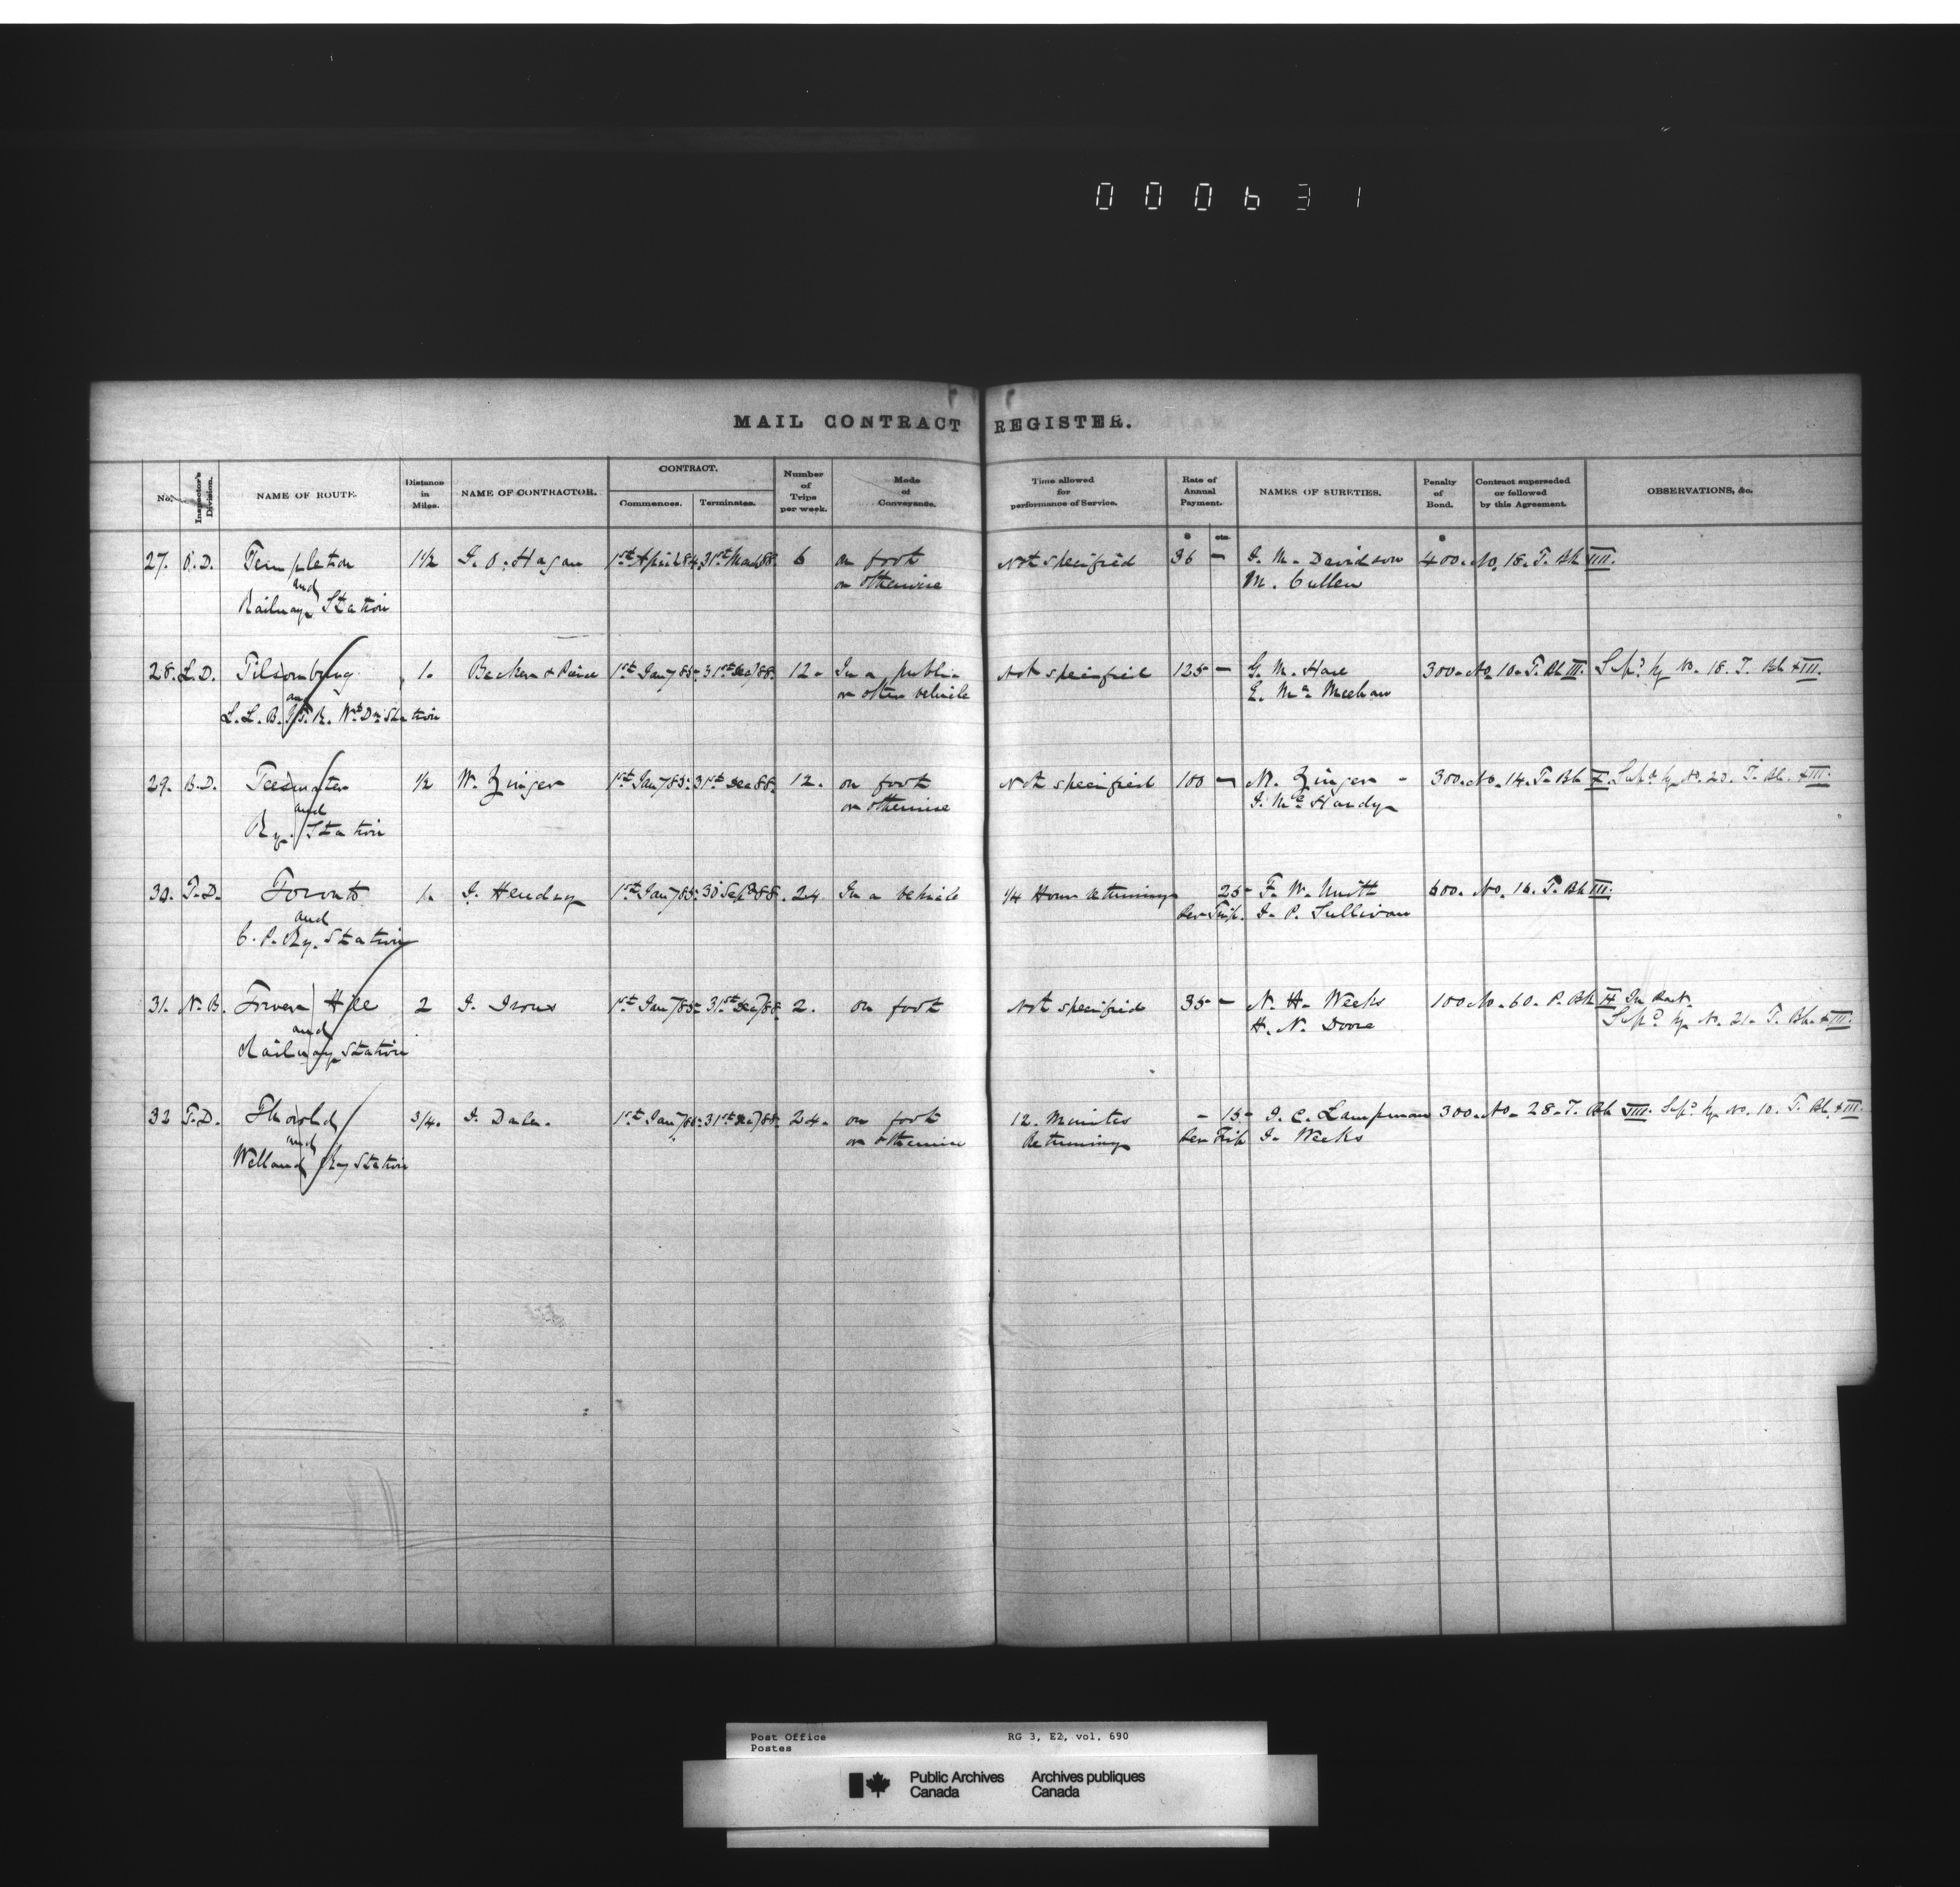 000631
MAIL CONTRACT REGISTER.
No. Inspector's Division. NAME OF ROUTE. Distance in Miles. NAME OF CONTRACTOR. CONTRACT. Commences. Terminates. Number of Trips per week. Mode of Conveyance. Time allowed for performance of Service. Rate of Annual Payment. NAMES OF SURETIES. Penalty of Bond. Contract superseded or followed by this Agreement. OBSERVATIONS, &c.
$ cts. $
27. O.D. Templeton 1½ J. O. Hagan 1st April 84. 31st March 88. 6 on foot Not specified 36 - J. M. Davidson 400. No. 18. T. Bk VIII.
and or otherwise M. Cullen
Railway Station
28. L.D. Tilsonburg 1. 1st Jany 85. 31st Dec 88. 12. In a public Not specified 125 - G. M. Hare 300. No 10. T. Bk III. Supd by No. 18. T. Bk XIII.
and or other vehicle
L. L. B. Station
29. B.D. Teeswater ½ W. Zinger 1st Jany 85. 31st Dec 88. 12. on foot Not specified 100 - M. Zinger - 300. No. 14. T. Bk X. Supd by No. 20. T. Bk. XIII.
and or otherwise J. McHardy
Ry. Station
30. T.D. Toronto 1. J. Hendry 1st Jany 85. 30 Sept 88. 24 In a vehicle ¼ Hour returning 25 F. W. Unitt 600. No. 16. T. Bk III.
and Per Trip. J. P. Sullivan
C. P. Ry. Station
31. N.B. Tower Hill 2 J. Irons 1st Jany 85. 31st Dec 88. 2. on foot Not specified 35 - N. H. Weeks 100. No. 60. P. Bk In Part.
and H. N. Doore Supd by No. 21. T. Bk. XIII.
Railway Station
32 T.D. Thorold 3/4. J. Daley. 1st Jany 31st Dec 88. 24. on foot 12. Minutes - 15 J. C. Lampman 300. No. 28. T. Bk VIII. Supd by No. 10. T. Bk. XIII.
and or otherwise Returning Per Trip J. Weeks
Welland Ry Station
Post Office RG 3, E2, vol. 690
Postes
Public Archives Archives publiques
Canada Canada